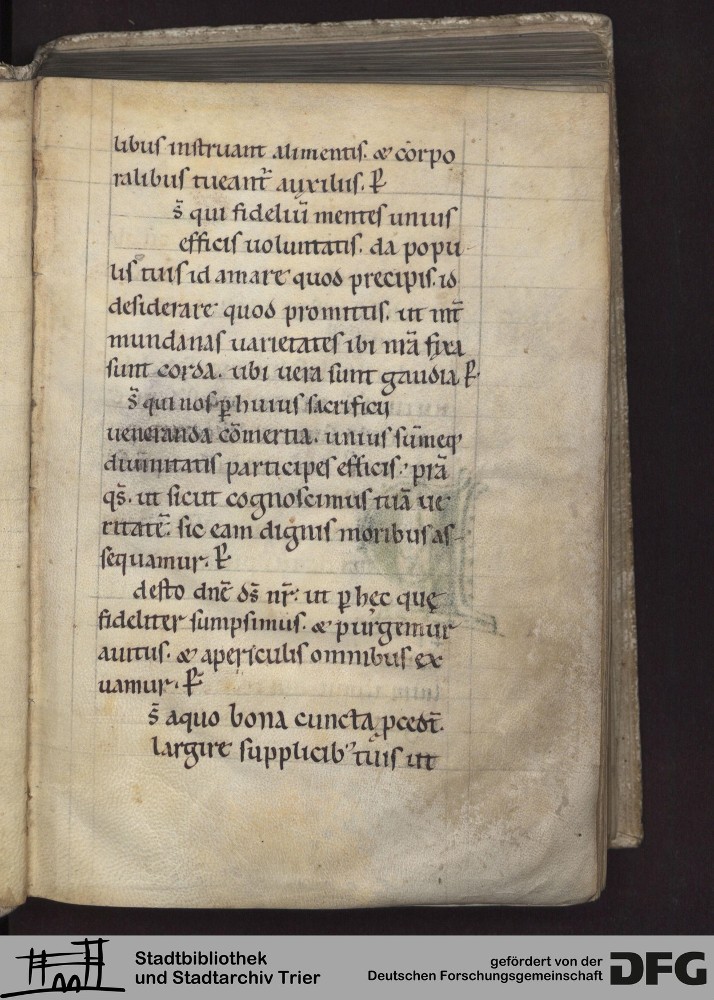 libus instruant alimentis. & corpo
ralibus tueant̄ auxiliis. P̄
s̄ qui fideliū mentes unius
efficis uoluntatis. da popu
lis tuis id amare quod precipis. id
desiderare quod promittis. ut int̄
mundanas uarietates ibi nr̄a fixa
sunt corda. ubi uera sunt gaudia P̄
s̄ qui nos ꝑ huius sacrificii
ueneranda cōmertia. unius sūmeq;
diuinitatis participes efficis: pr̄a
qs̄. ut sicut cognoscimus tuā ue
ritatē. sic eam dignis moribus as-
sequamur. P̄
desto dn̄e ds̄ nr̄. ut ꝑ hęc quę
fideliter sumpsimus. & purgemur
a uitiis. & a periculis omnibus ex
uamur. P̄
s̄ a quo bona cuncta ꝓcedt̄.
largire supplicib; tuis ut
Stadtbibliothek
und Stadtarchiv Trier
gefördert von der
Deutschen Forschungsgemeinschaft
DFG